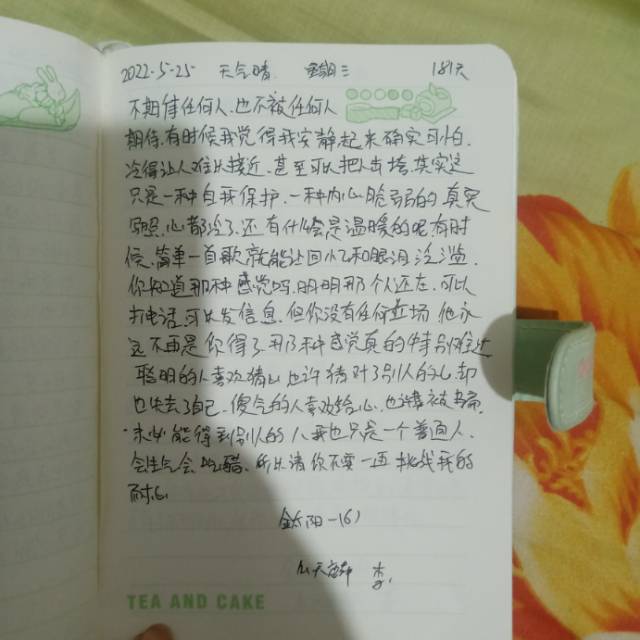 2022.5.25 天气晴 星期三 181天
不期待任何人.也不被任何人
期待.有时候我觉得我安静起来确实可怕.
冷得让人难以接近.甚至可以把人击垮.其实这
只是一种自我保护.一种内心脆弱的真实
写照.心都冷了.还有什么是温暖的呢.有时
候.简单一首歌.就能让回忆和眼泪泛滥.
你知道那种感觉吗.明明那个人还在.可以
打电话.可以发信息.但你没有任何立场.他永
远不再是你得了.那种感觉真的特别难过
聪明的人喜欢猜心也许猜对了别人的心.却
也失去了自己.傻气的人喜欢给心.也许会被骗.
未必能得到别人的心.我也只是一个普通人.
会生气会吃醋.所以请你不要一再挑战我的
耐心
太阳-161
李.
TEA AND CAKE